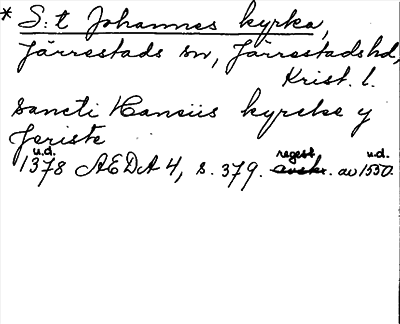 * S:t Johannes kyrka,
Järrestads sn, Järrestads hd,
Krist. l.
Sancti Hansiis kyrcke y
Jeriste
u.d. regest u.d.
1378 AEDA 4, s. 379. avskr. av 1550.